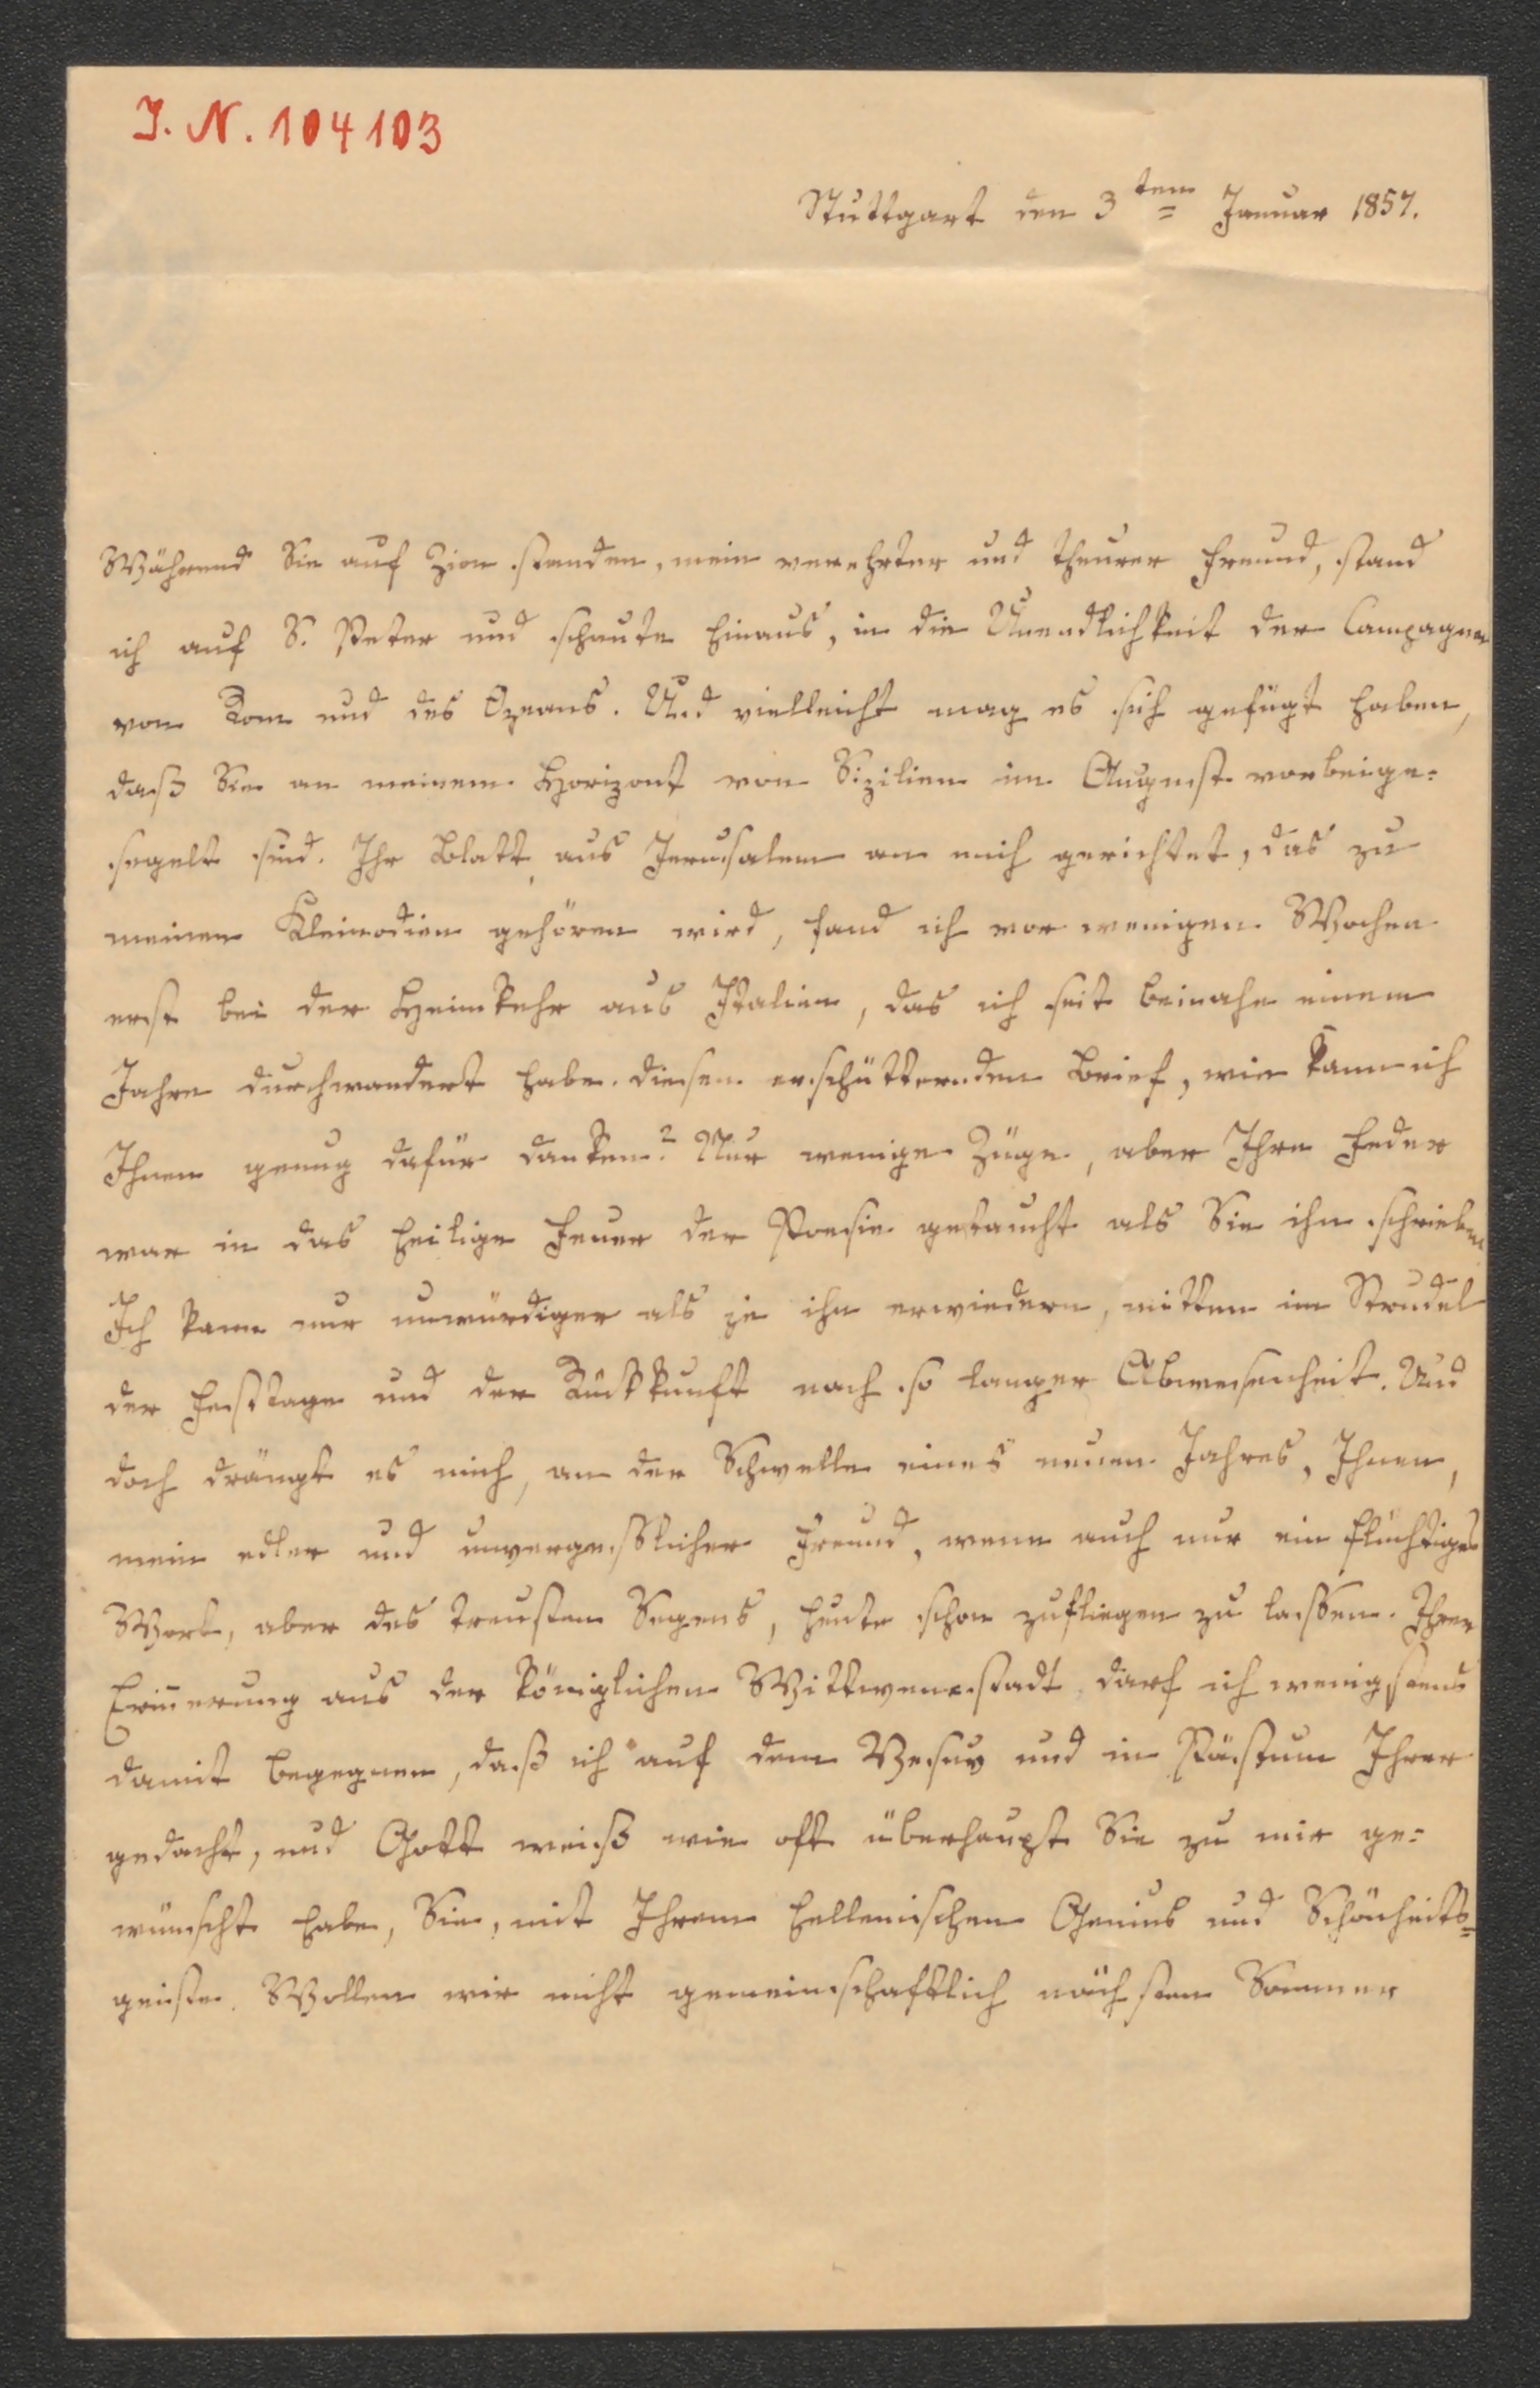 I. N. 104103
Stuttgart den 3ten Januar 1857.
Während Sie auf Zion standen, mein verehrter und theurer Freund, stand
ich auf S. Peter und schaute hinaus, in die Unendlichkeit der Campagna
von Rom und des Ozeans. Und vielleicht mag es sich gefügt haben,
daß Sie an meinem Horizont von Sizilien im August vorbeige-
segelt sind. Ihr Blatt, aus Jerusalem an mich gerichtet, das zu
meinen Kleinodien gehören wird, fand ich vor wenigen Wochen
erst bei der Heimkehr aus Italien, das ich seit beinahe einem
Jahre durchwandert habe. Diesen erschütternden Brief, wie kann ich
Ihnen genug dafür danken? Nur wenige Züge, aber Ihre Feder
war in das heilige Feuer der Poesie getaucht als Sie ihn schrieben
Ich kann nur unwürdiger als je ihn erwiedern, mitten im Strudel
der Festtage und der Rückkunft nach so langer Abwesenheit. Und
doch drängt es mich, an der Schwelle eines neuen Jahres, Ihnen,
mein edler und unvergesslicher Freund, wenn auch nur ein flüchtiges
Wort, aber des treusten Segens, heute schon zufliegen zu lassen. Ihrer
Erinnerung aus der königlichen Wittwenstadt darf ich wenigstens
damit begegnen, daß ich auf dem Vesuv und in Pästum Ihrer
gedacht, und Gott weiß wie oft überhaupt Sie zu mir ge-
wünscht habe, Sie, mit Ihrem hellenischen Genius und Schönheits-
geiste. Wollen wir nicht gemeinschaftlich nächsten Sommer